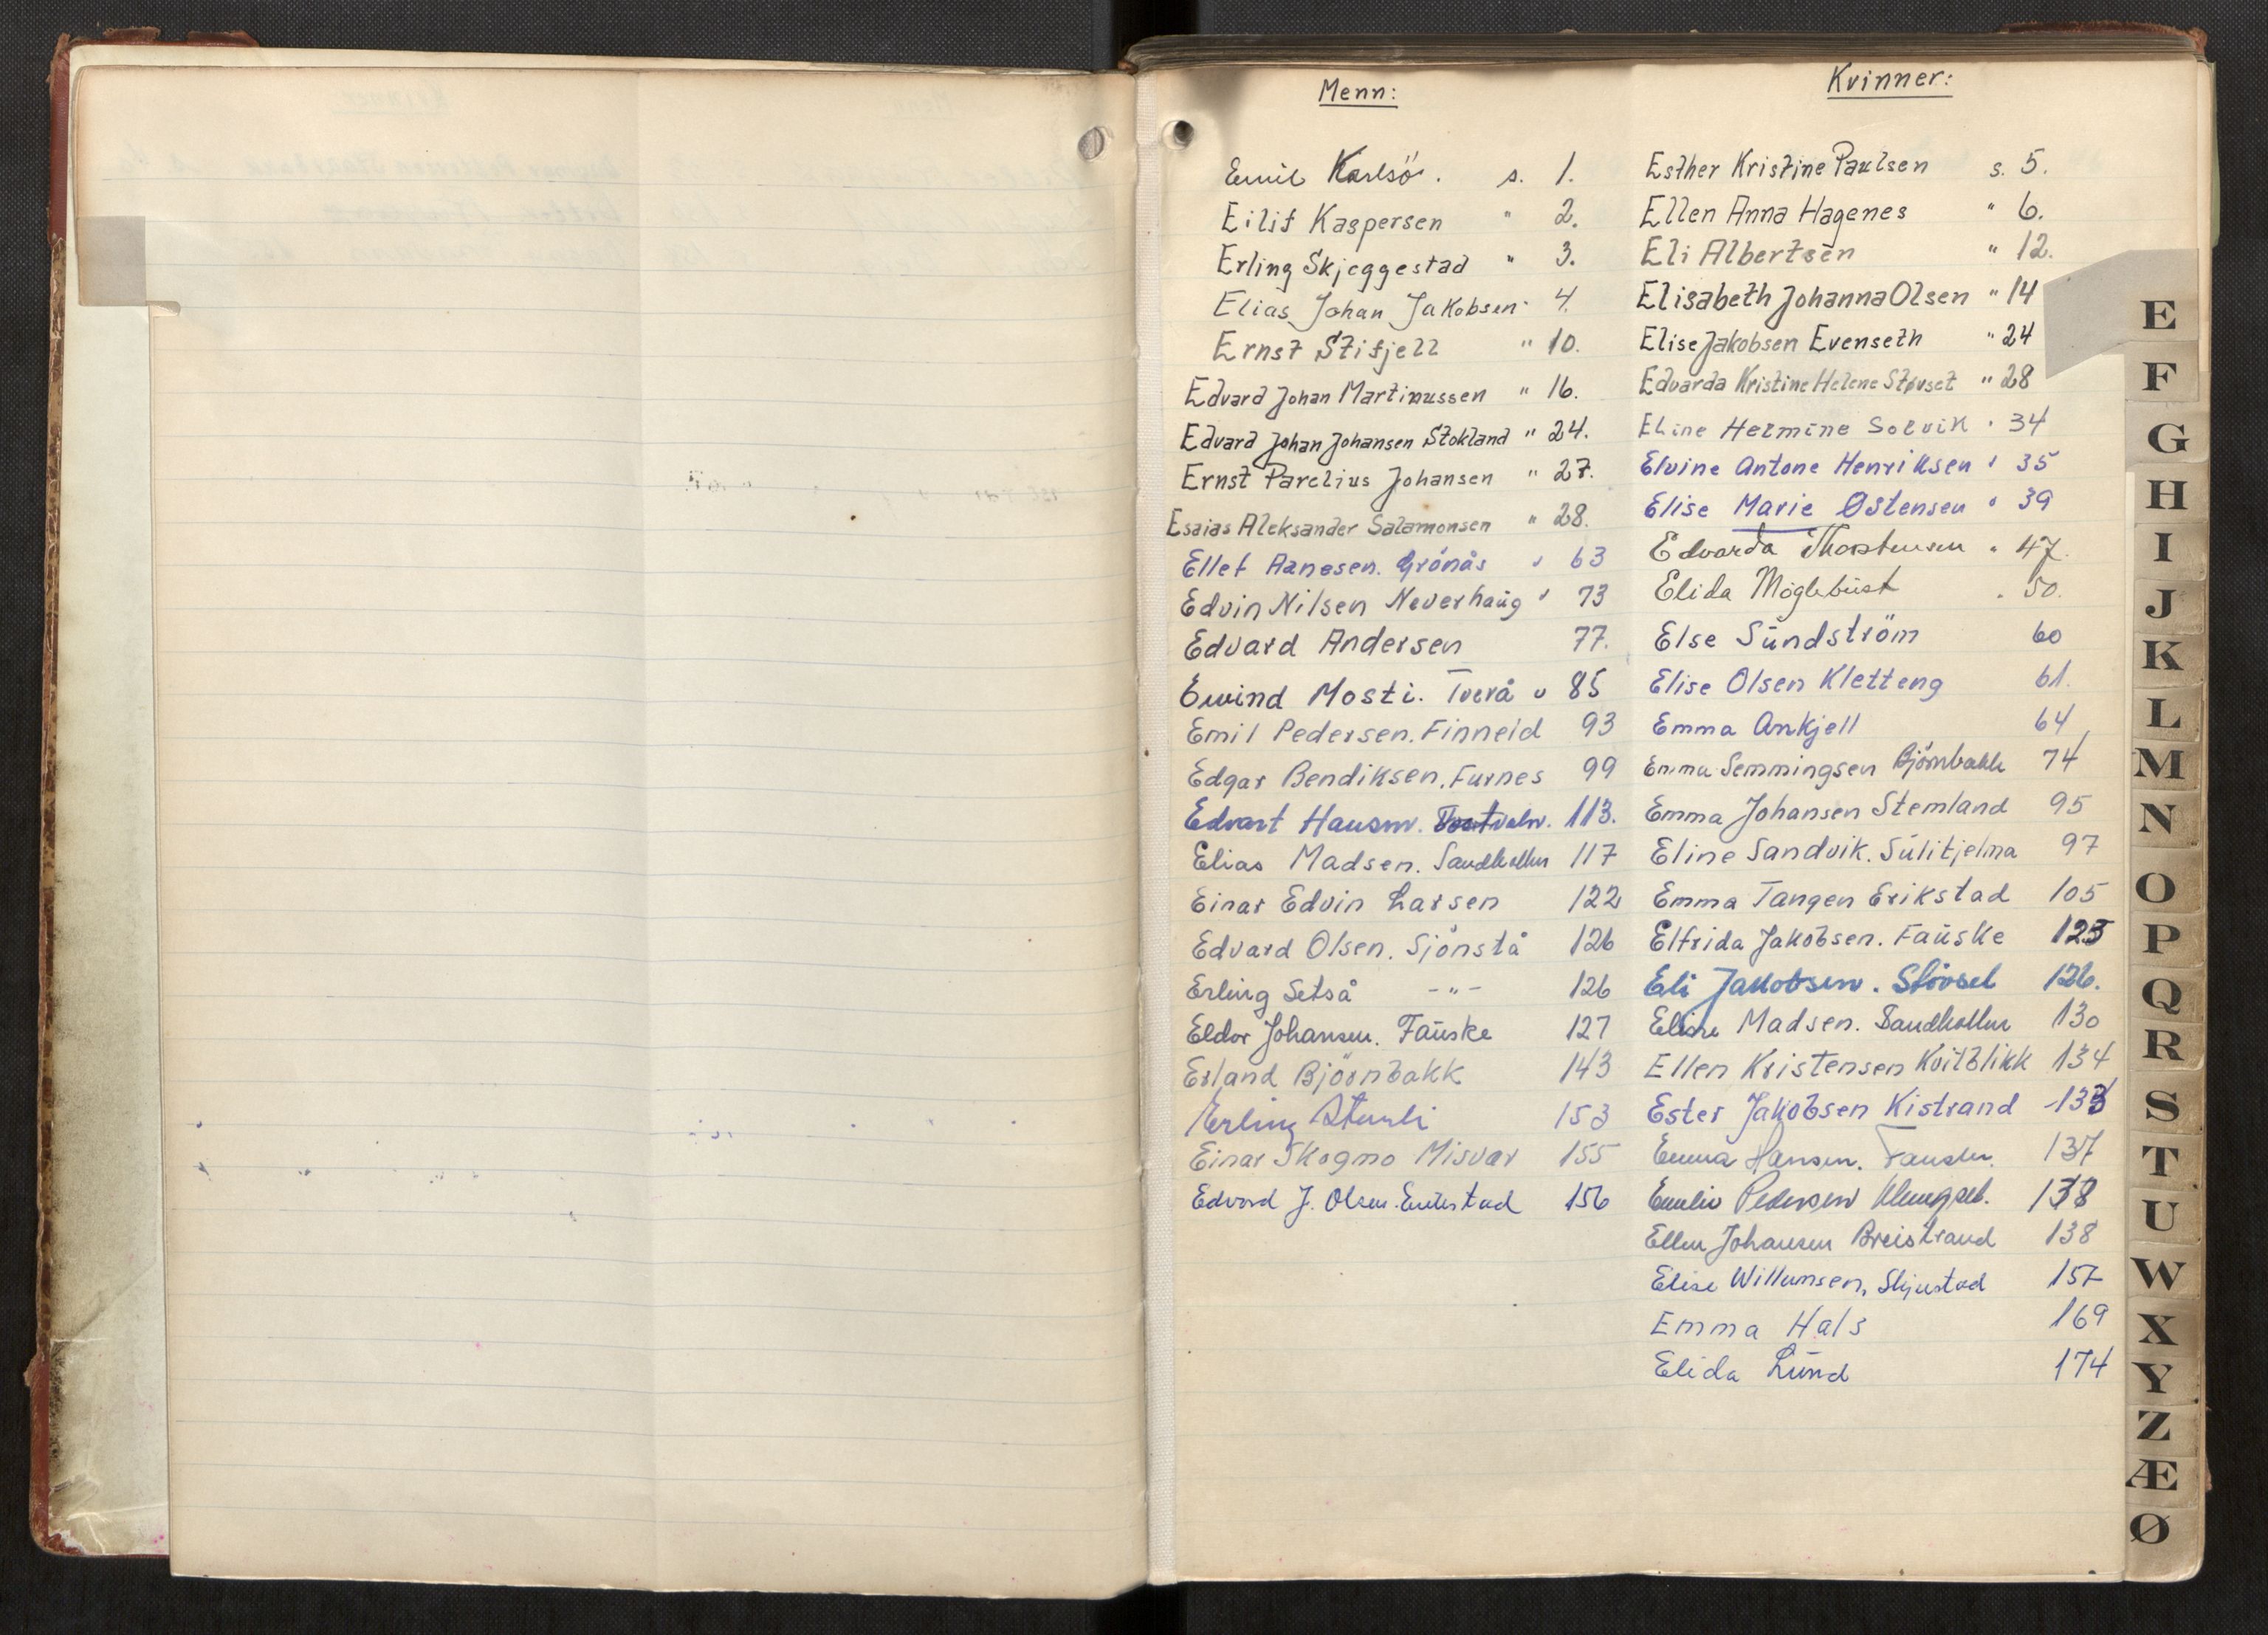 Menn:
Emil Karlsö. s. 1.
Eilif Kaspersen " 2.
Erling Skjeggestad " 3.
Elias Johan Jakobsen " 4.
Ernst Stifjell " 10.
Edvard Johan Martinussen " 16.
Edvard Johan Johansen Stokland " 24.
Ernst Parelius Johansen " 27.
Esaias Aleksander Salamonsen " 28.
Ellef Arnesen. Grönås " 63
Edvin Nilsen Neverhaug " 73
Edvard Andersen 77.
Eivind Mosti. Tverå " 85
Emil Pedersen. Finneid 93
Edgar Bendiksen. Furnes 99
Edvart Hansen. 113.
Elias Madsen. Sandkollen 117
Einar Edvin Larsen 122
Edvard Olsen. Sjönstå 126
Erling Setså -"- 126
Eldor Johansen. Fauske 127
Erland Björnbakk 143
Erling 153
Einar Skogmo Misvær 155
Edvard J. Olsen. 156
Kvinner:
Esther Kristine Paulsen s. 5.
Ellen Anna Hagenes " 6.
Eli Albertsen " 12.
Elisabeth Johanna Olsen " 14
Elise Jakobsen Evenseth " 24
Edvarda Kristine Helene Støvset " 28
Eline Hermine Solvik " 34
Elvine Antone Henriksen " 35
Elise Marie Østensen " 39
Edvarda Thorstensen " 47.
Elida Möglebust " 50.
Else Sundström 60
Elise Olsen Kletteng 61.
Emma Ankjell 64
Emma Semmingsen Björnbakk 74
Emma Johansen Stemland 95
Eline Sandvik. Sulitjelma 97
Emma Tangen Erikstad 105
Elfrida Jakobsen. Fauske 123
Eli Jakobsen. Stövset 126.
Eline Madsen. Sandkollen 130
Ellen Kristensen Kvitblikk 134
Ester Jakobsen Kistrand 133
Emma Hansen. Fauske. 137
Emelie Pedersen Klungset. 138
Ellen Johansen Breistrand 138
Elise Willumsen, Skjerstad 157
Emma Hals 169
Elida Lund 174
E
F
G
H
I
J
K
L
M
N
O
P
Q
R
S
T
U
W
X
Y
Z
Æ
Ø